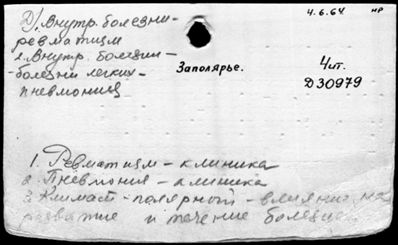 2) Внутр. болезни-
ревматизм
2. Внутр. болезни-
-болезни легких-
-пневмониц
4.6.64 нр
Заполярье.
4ит.
Д30979
1. Ревматизм - клиника
2. Пневмония - клиника
3. Климат - полярный - влияние на
развитие и течение болезней